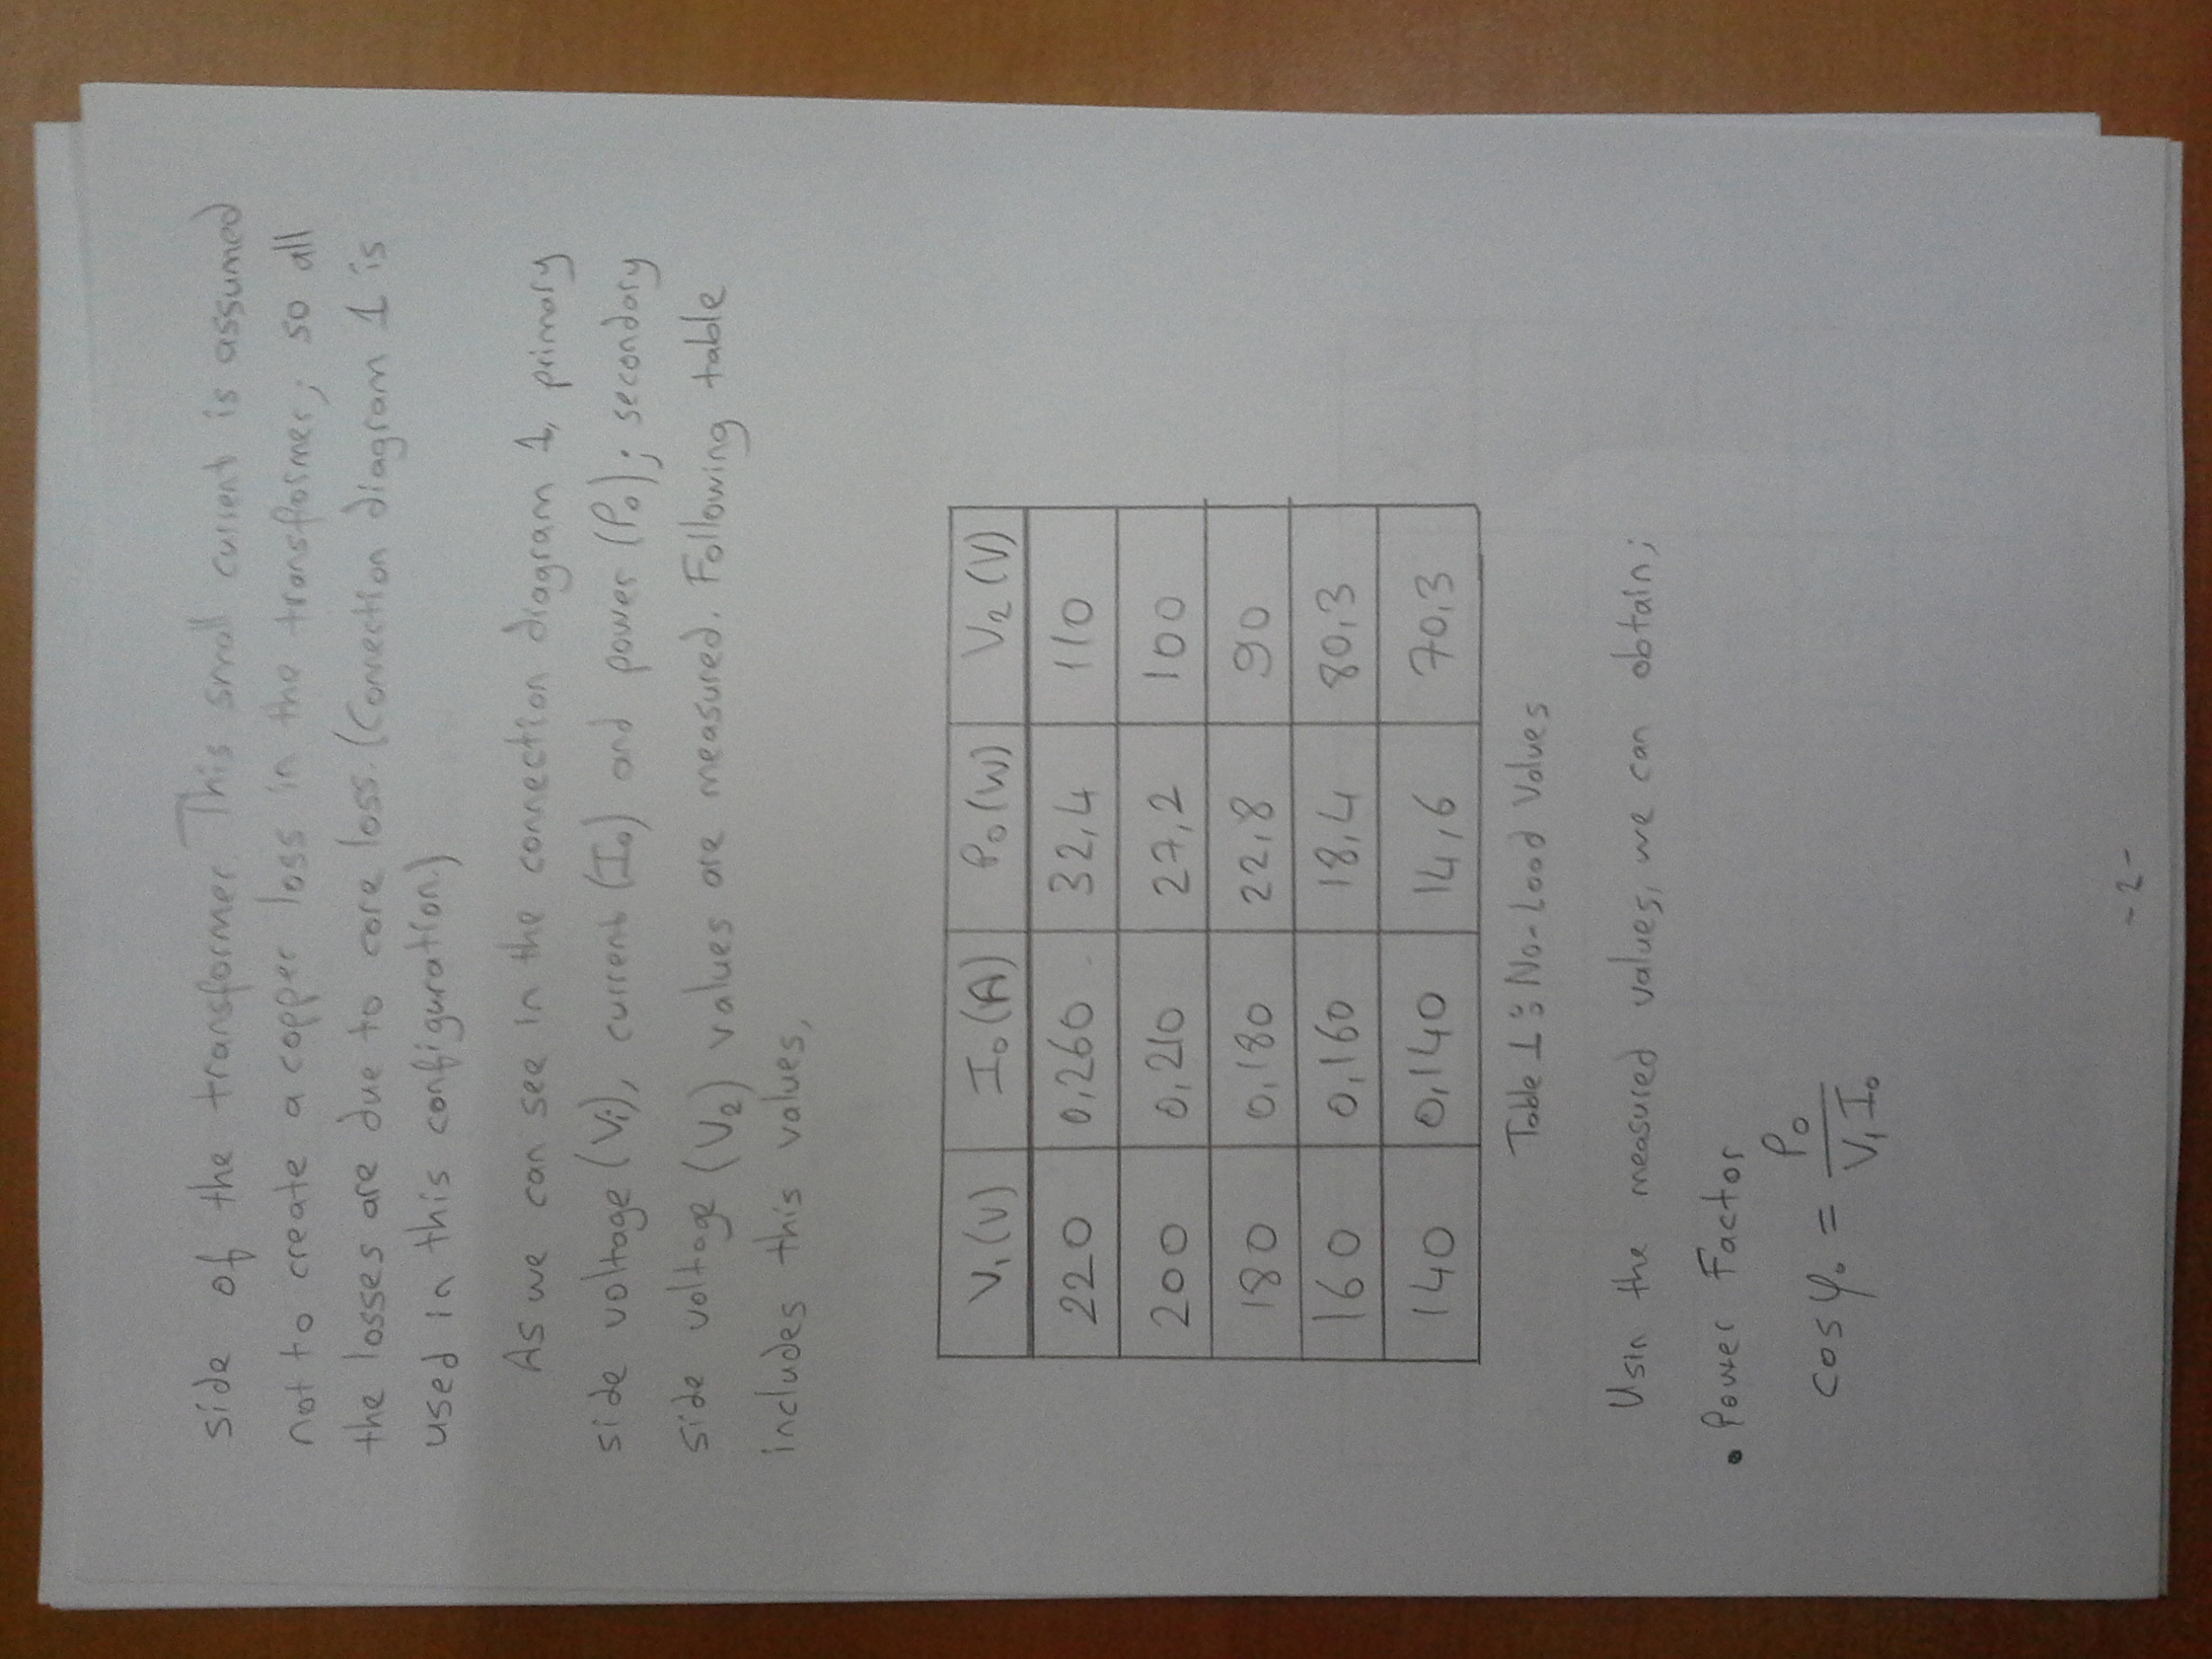 side of the transformer. This small current is assumed
not to create a copper loss in the transformer; so all
the losses are due to core loss. (Connection diagram 1 is
used in this configuration.)
As we can see in the connection diagram 1, primary
side voltage (V₁), current (I₀) and power (P₀); secondary
side voltage (V₂) values are measured. Following table
includes this values,
V₁(V) I₀(A) P₀(W) V₂(V)
220 0,260 32,4 110
200 0,210 27,2 100
180 0,180 22,8 90
160 0,160 18,4 80,3
140 0,140 14,6 70,3
Table 1: No-Load Values
Usin the measured values, we can obtain;
• Power Factor
cos φ₀ = P₀ / V₁I₀
-2-